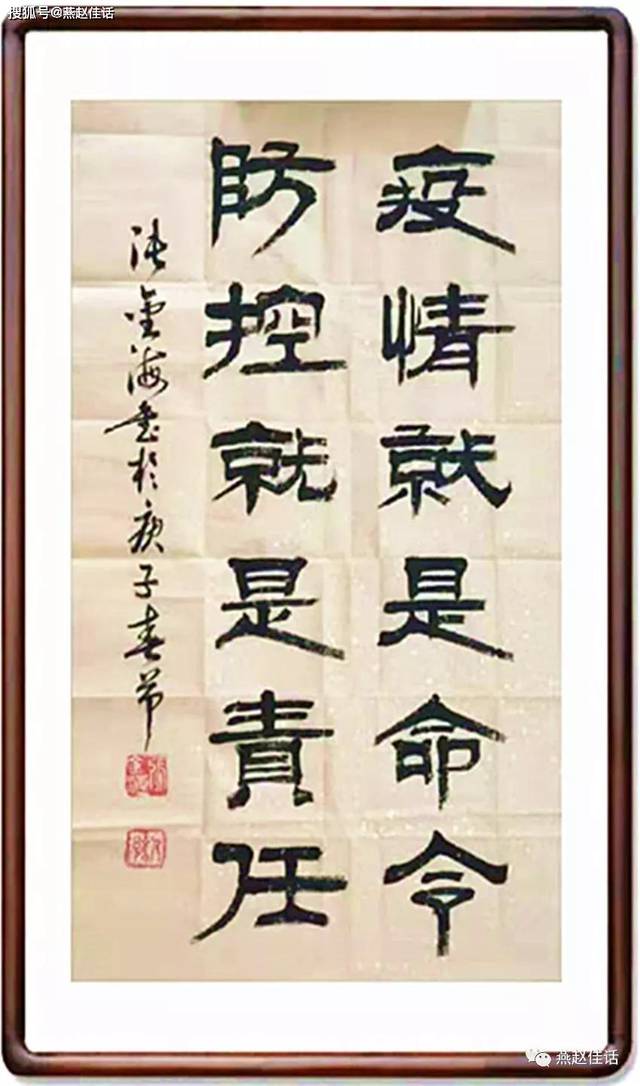 搜狐号@燕赵佳话
疫情就是命令
防控就是責任
张金海书於庚子春节
燕赵佳话